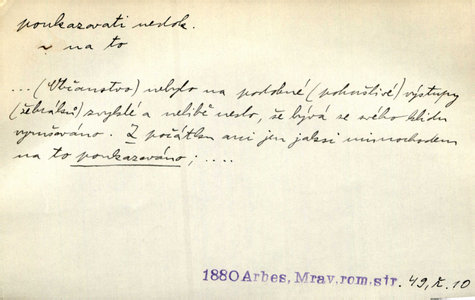 poukazovati nedok.
~ na to
...(Občanstvo) nebylo na podobné (pohoršlivé) výstupy
(žebráků) zvyklé a nelibě neslo, že bývá ze svého klidu
vyrušováno. Z počátku ani jen jaksi mimochodem
na to poukazováno; ....
1880 Arbes, Mrav. rom. str. 49, ř. 10